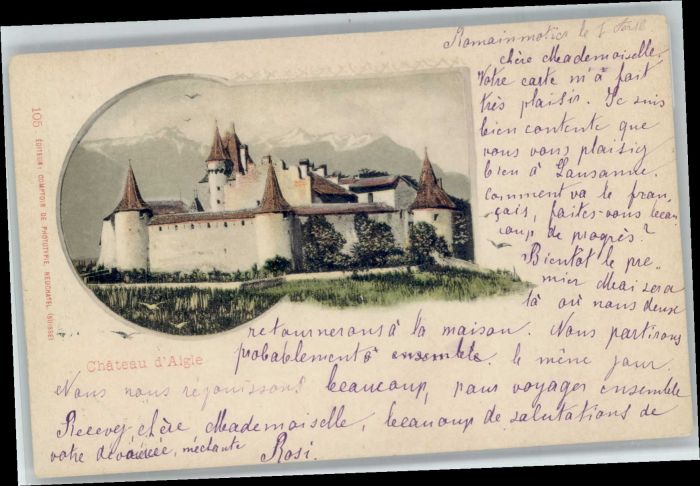 Romainmotier le 1
chère Mademoiselle.
Votre carte m'a fait
très plaisir. Je suis
bien contente que
vous vous plaisiez
bien à Lausanne.
comment va le fran-
çais, faites-vous beau
coup de progrès?
Bientôt le pre-
mier Mai sera
là où nous deux
retournerons à la maison. Nous partirons
probablements ensemble. le même jour.
Nous nous réjouissons beaucoup, pour voyager ensemble
Recevez chère Mademoiselle, beaucoup de salutations de
votre méctante Rosi.
Château d'Aigle
105 EDITEUR: COMPTOIR DE PHOTOTYPIE, NEUCHATEL (SUISSE)